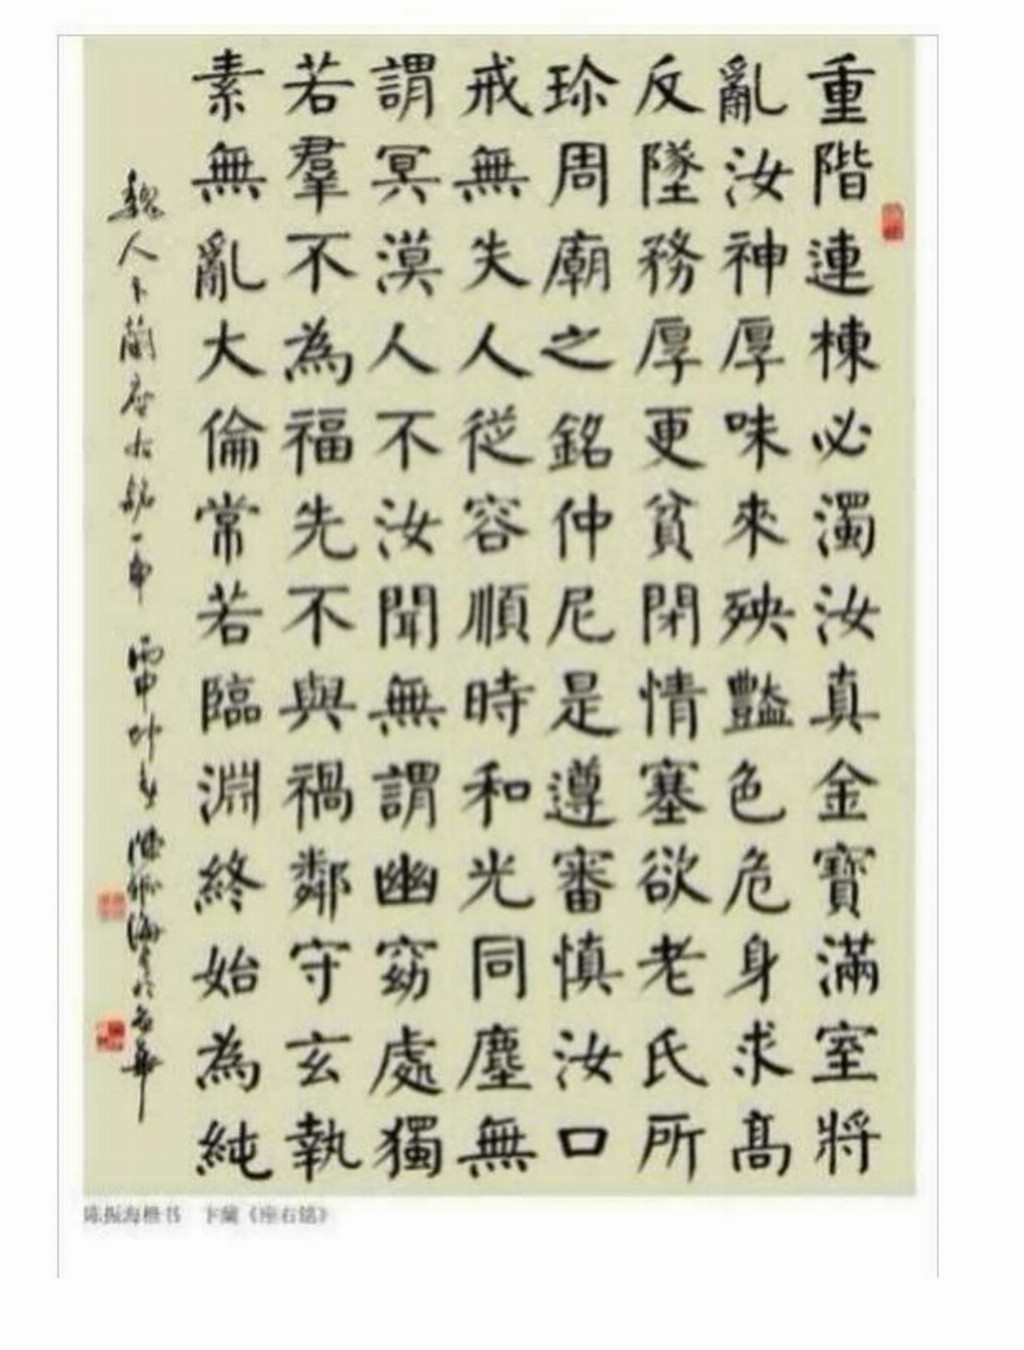 重階連棟必濁汝真金寶滿室將
亂汝神厚味來殃豔色危身求高
反墜務厚更貧閉情塞欲老氏所
珎周廟之銘仲尼是遵審慎汝口
戒無失人從容順時和光同塵無
謂冥漠人不汝聞無謂幽窈處獨
若羣不為福先不與禍鄰守玄執
素無亂大倫常若臨淵終始為純
魏人卞蘭座右銘一章 丙申
陈振海楷书 卞蘭《座右銘》